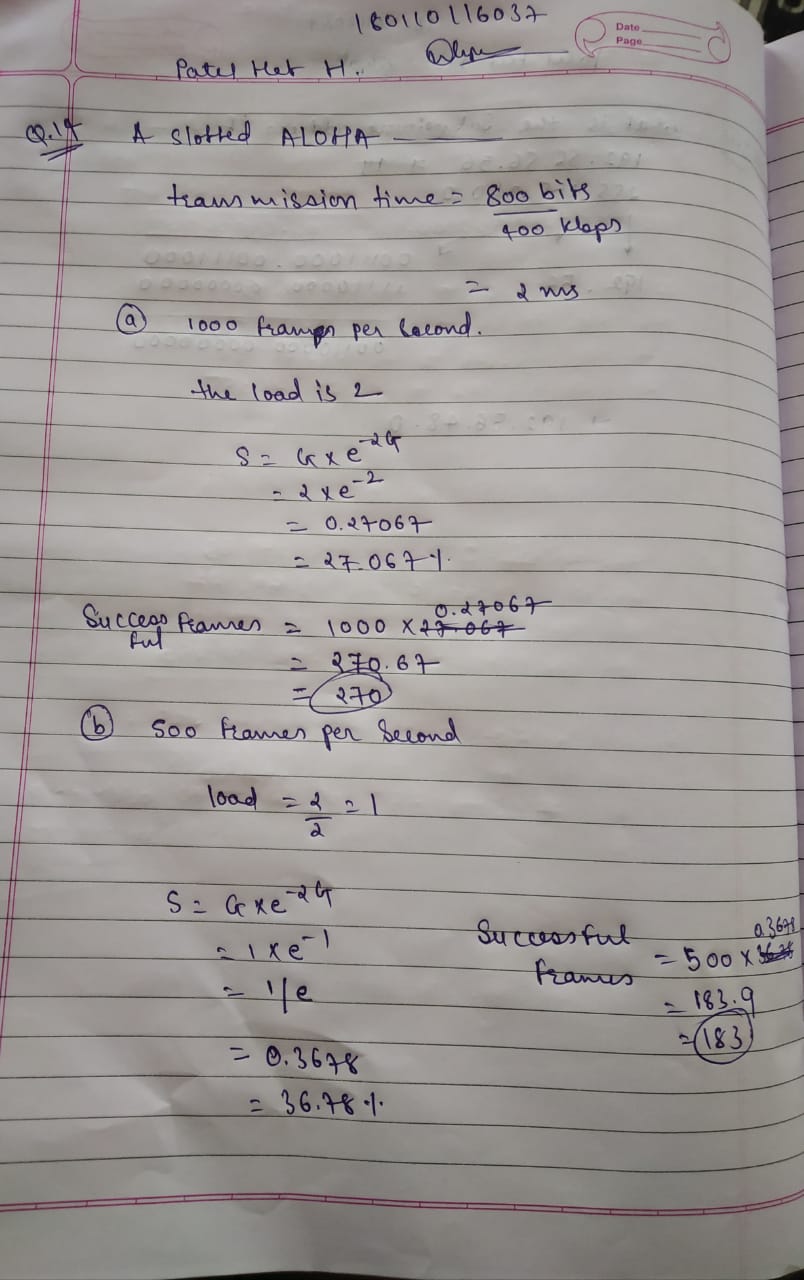 180110116037
Date
Page
Patel Het H.
Q.17 A Slotted ALOHA
transmission time = 800 bits
400 kbps
= 2 ms
(a) 1000 frames per second.
the load is 2
S = G x e^-2G
= 2 x e^-2
= 0.27067
= 27.067 %.
Success ful frames = 1000 x 27.067 0.27067
= 270.67
= 270
(b) 500 frames per Second
load = 2/2 = 1
S = G x e^-2G
= 1 x e^-1
= 1/e
= 0.3678
= 36.78 %.
Successful frames = 500 x 0.3678
= 183.9
= 183